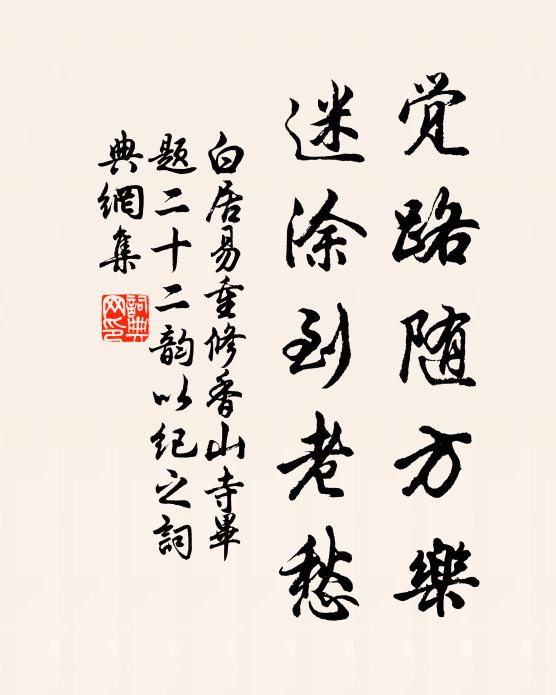 觉路随方樂
迷涂到老愁
白居易重修香山寺畢
题二十二韵以纪之詞
典網集
詞典
网印